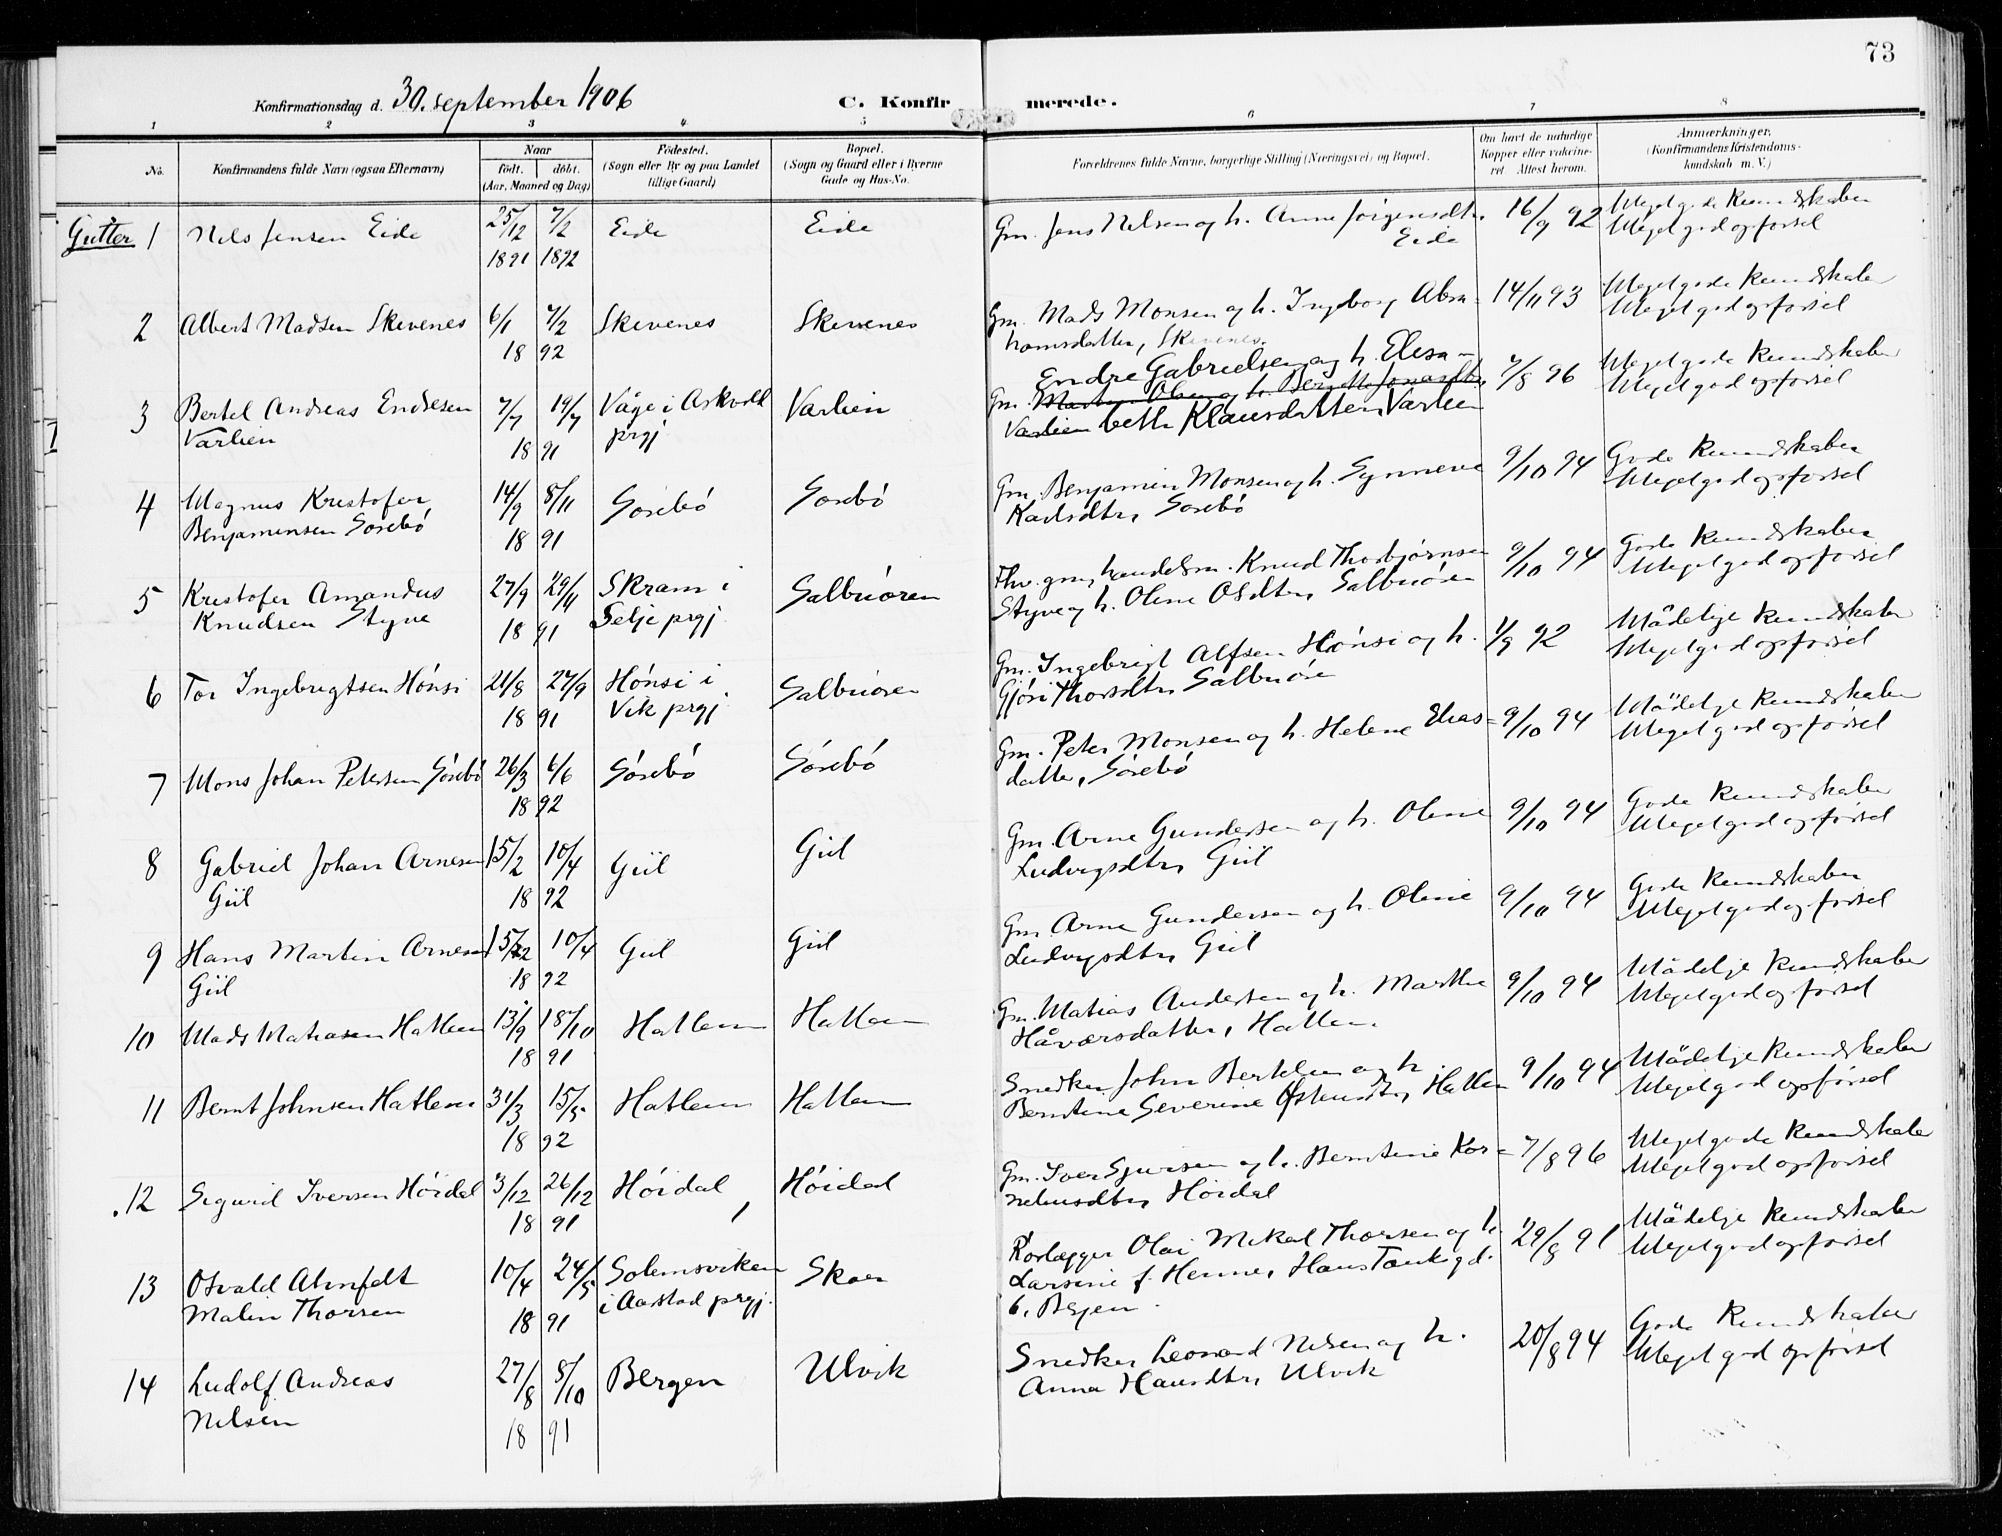 73
Konfirmationsdag d. 30. september 1906 C. Konfirmerede.
1 2 3 4 5 6 7 8
No. Konfirmandens fulde Navn (ogsaa Efternavn) Naar født. døbt. (Aar, Maaned og Dag) Fødested. (Sogn eller By og paa Landet tillige Gaard) Bopæl. (Sogn og Gaard eller i Byerne Gade og Hus-No. Forældrenes fulde Navne, borgerlige Stilling (Næringsvei) og Bopæl. Om havt de naturlige Kopper eller vakcineret. Attest herom. Anmærkninger, (Konfirmandens Kristendomskundskab m. V.)
Gutter 1 Nils Jensen Eide 25/12 1891 7/2 1892 Eide Eide Gm. Jens Nilsen og h. Anne Jørgensdtr. Eide 16/9 92 Meget gode kundskaber Meget god opførsel
2 Albert Madsen Skivenes 6/1 7/2 1892 Skivenes Skivenes Gm. Mads Monsen og h. Ingeborg Abrahamsdatter, Skivenes. 14/11 93 Meget gode kundskaber Meget god opførsel
3 Bertel Andreas Endresen Varlien 7/7 19/7 1891 Våge i Askvold prgj. Varlien Gm. Endre Gabrielsen og h. Elisabeth Klausdatter Varlien 7/8 96 Meget gode kundskaber Meget god opførsel
4 Magnus Kristofer Benjaminsen Sørebø 14/9 8/11 1891 Sørebø Sørebø Gm. Benjamin Monsen og h. Synneve Karlsdtr, Sørebø 9/10 94 Gode kundskaber Meget god opførsel
5 Kristofer Amandus Knudsen Styve 27/9 29/11 1891 Skram i Selje prgj. Salbuøren Fhv. gm, handelsm. Knud Thorbjørnsen Styve og h. Oline Olsdtr, Salbuøren 9/10 94 Gode kundskaber Meget god opførsel
6 Tor Ingebrigtsen Hønsi 21/8 27/9 1891 Hønsi i Vik prgj. Salbuøren Gm. Ingebrigt Alfsen Hønsi og h. Gjøri Thorsdtr, Salbuøre 1/9 92 Mådelige kundskaber Meget god opførsel
7 Mons Johan Petersen Sørebø 26/3 6/6 1892 Sørebø Sørebø Gm. Peter Monsen og h. Helene Eliasdatter, Sørebø 9/10 94 Mådelige kundskaber Meget god opførsel
8 Gabriel Johan Arnesen Giil 15/2 10/4 1892 Giil Giil Gm. Arne Gundersen og h. Oline Ludvigsdtr, Giil 9/10 94 Gode kundskaber Meget god opførsel
9 Hans Martin Arnesen Giil 15/2 10/4 1892 Giil Giil Gm. Arne Gundersen og h. Oline Ludvigsdtr, Giil 9/10 94 Gode kundskaber Meget god opførsel
10 Mads Matiasen Hatlem 13/9 18/10 1891 Hatlem Hatlem Gm. Matias Andersen og h. Marthe Håværsdatter, Hatlem. 9/10 94 Mådelige kundskaber Meget god opførsel
11 Bernt Johnsen Hatlem 31/3 15/5 1892 Hatlem Hatlem Snedker John Bertelsen og h. Berntine Severine Østensdtr, Hatlem 9/10 94 Mådelige kundskaber Meget god opførsel
12 Sigurd Iversen Høidal 3/12 26/12 1891 Høidal Høidal Gm. Iver Sjursen og h. Berntine Korneliusdtr, Høidal 7/8 96 Meget gode kundskaber Meget god opførsel
13 Osvald Malin Thorsen 10/4 24/5 1891 Solemsviken i Aarstad prgj. Skor Rørlægger Olai Mikal Thorsen og h. Larsine f. Henne, Hans Tanks gd. 6, Bergen. 29/8 91 Mådelige kundskaber Meget god opførsel
14 Ludolf Andreas Nilsen 27/8 8/10 1891 Bergen Ulvik Snedker Leonard Nilsen og h. Anna Hansdtr, Ulvik 20/8 94 Gode kundskaber Meget god opførsel